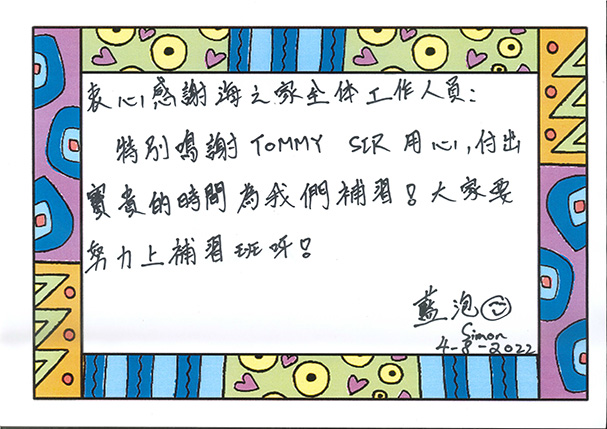 衷心感謝海之家全体工作人員：
特別鳴謝 TOMMY SIR 用心，付出
寶貴的時間為我們補習！大家要
努力上補習班呀！
藍泡
Simon
4-8-2022